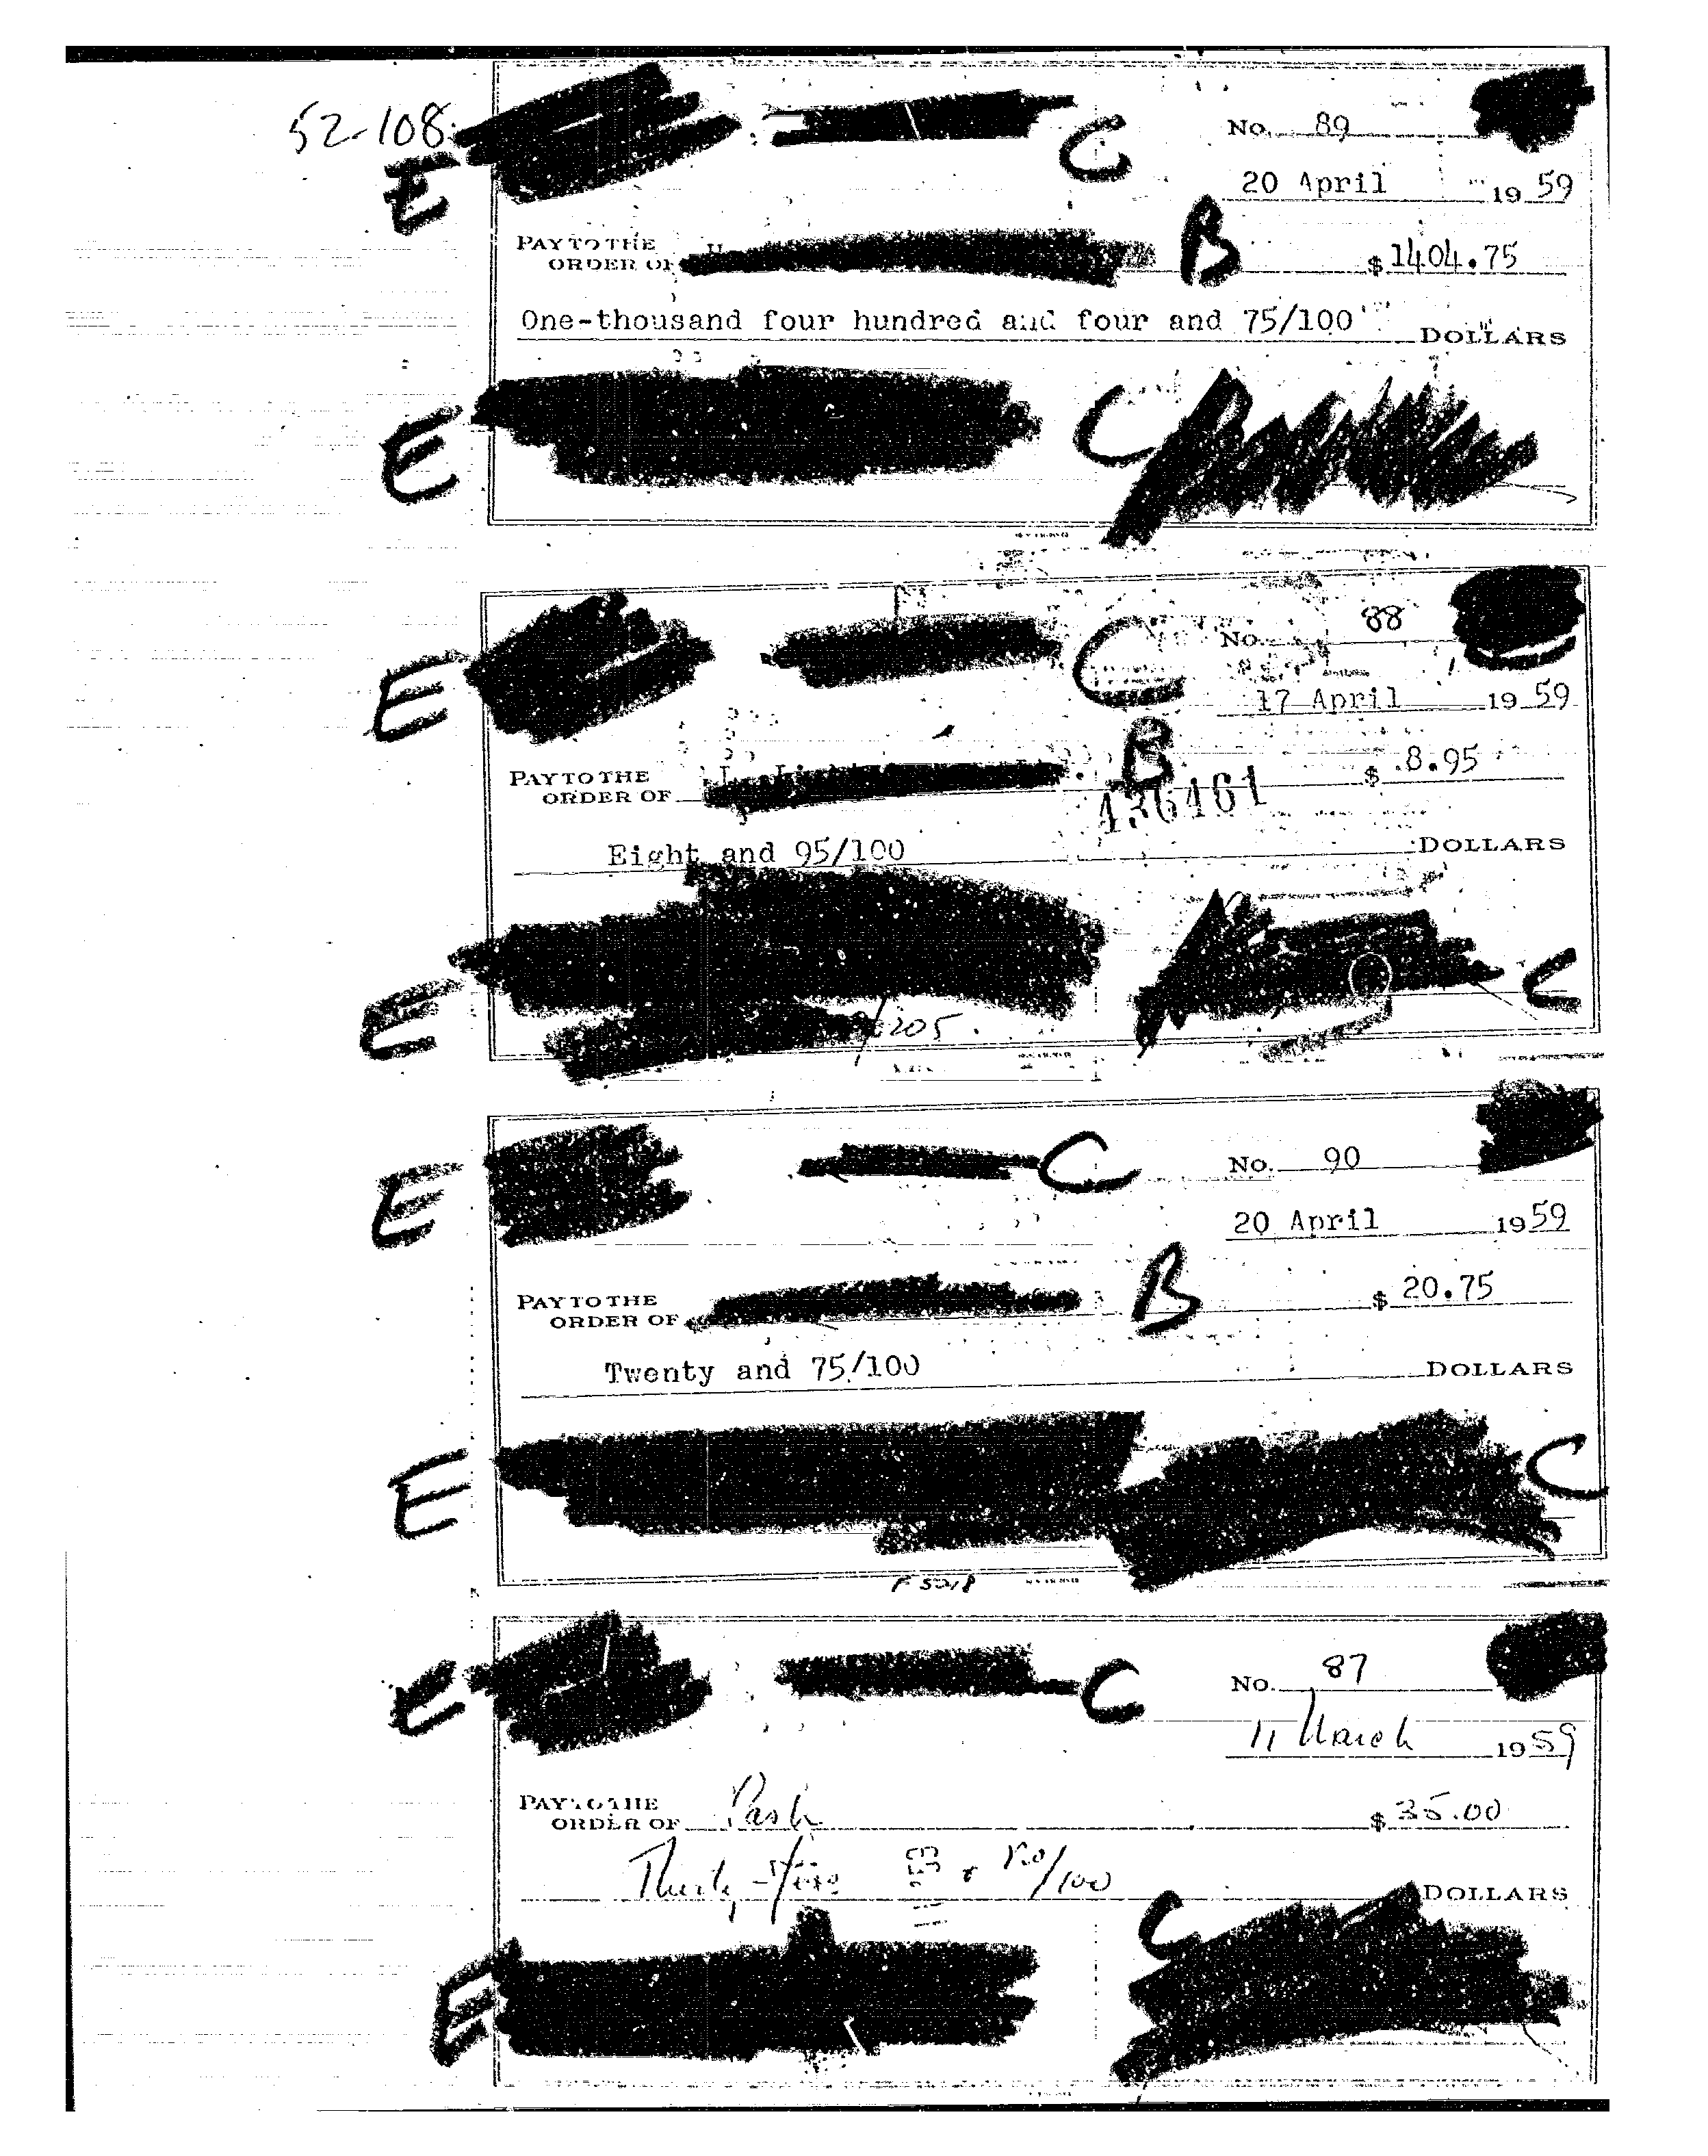 52-108
E
C
No. 89
20 April 1959
PAY TO THE
ORDER OF
B
$1404.75
One-thousand four hundred and four and 75/100 DOLLARS
E
C
E
C
No. 88
17 April 1959
PAY TO THE
ORDER OF
B
$ 8.95
436461
Eight and 95/100 DOLLARS
E
C
205
E
C
No. 90
20 April 1959
PAY TO THE
ORDER OF
B
$ 20.75
Twenty and 75/100 DOLLARS
E
C
F 5218
E
C
No. 87
11 March 1959
PAY TO THE
ORDER OF Cash
$ 35.00
Thirty-five & no/100 DOLLARS
C
E